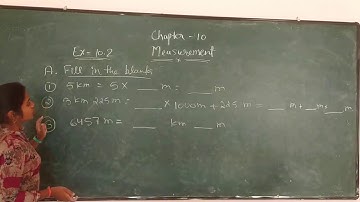 Chapter - 10
Ex - 10.2 Measurement
A. Fill in the blanks
① 5 km = 5 × ___ m = ___ m
② 3 km 225 m = ___ × 1000 m + 225 m = ___ m + ___ m = ___ m
③ 6457 m = ___ km ___ m